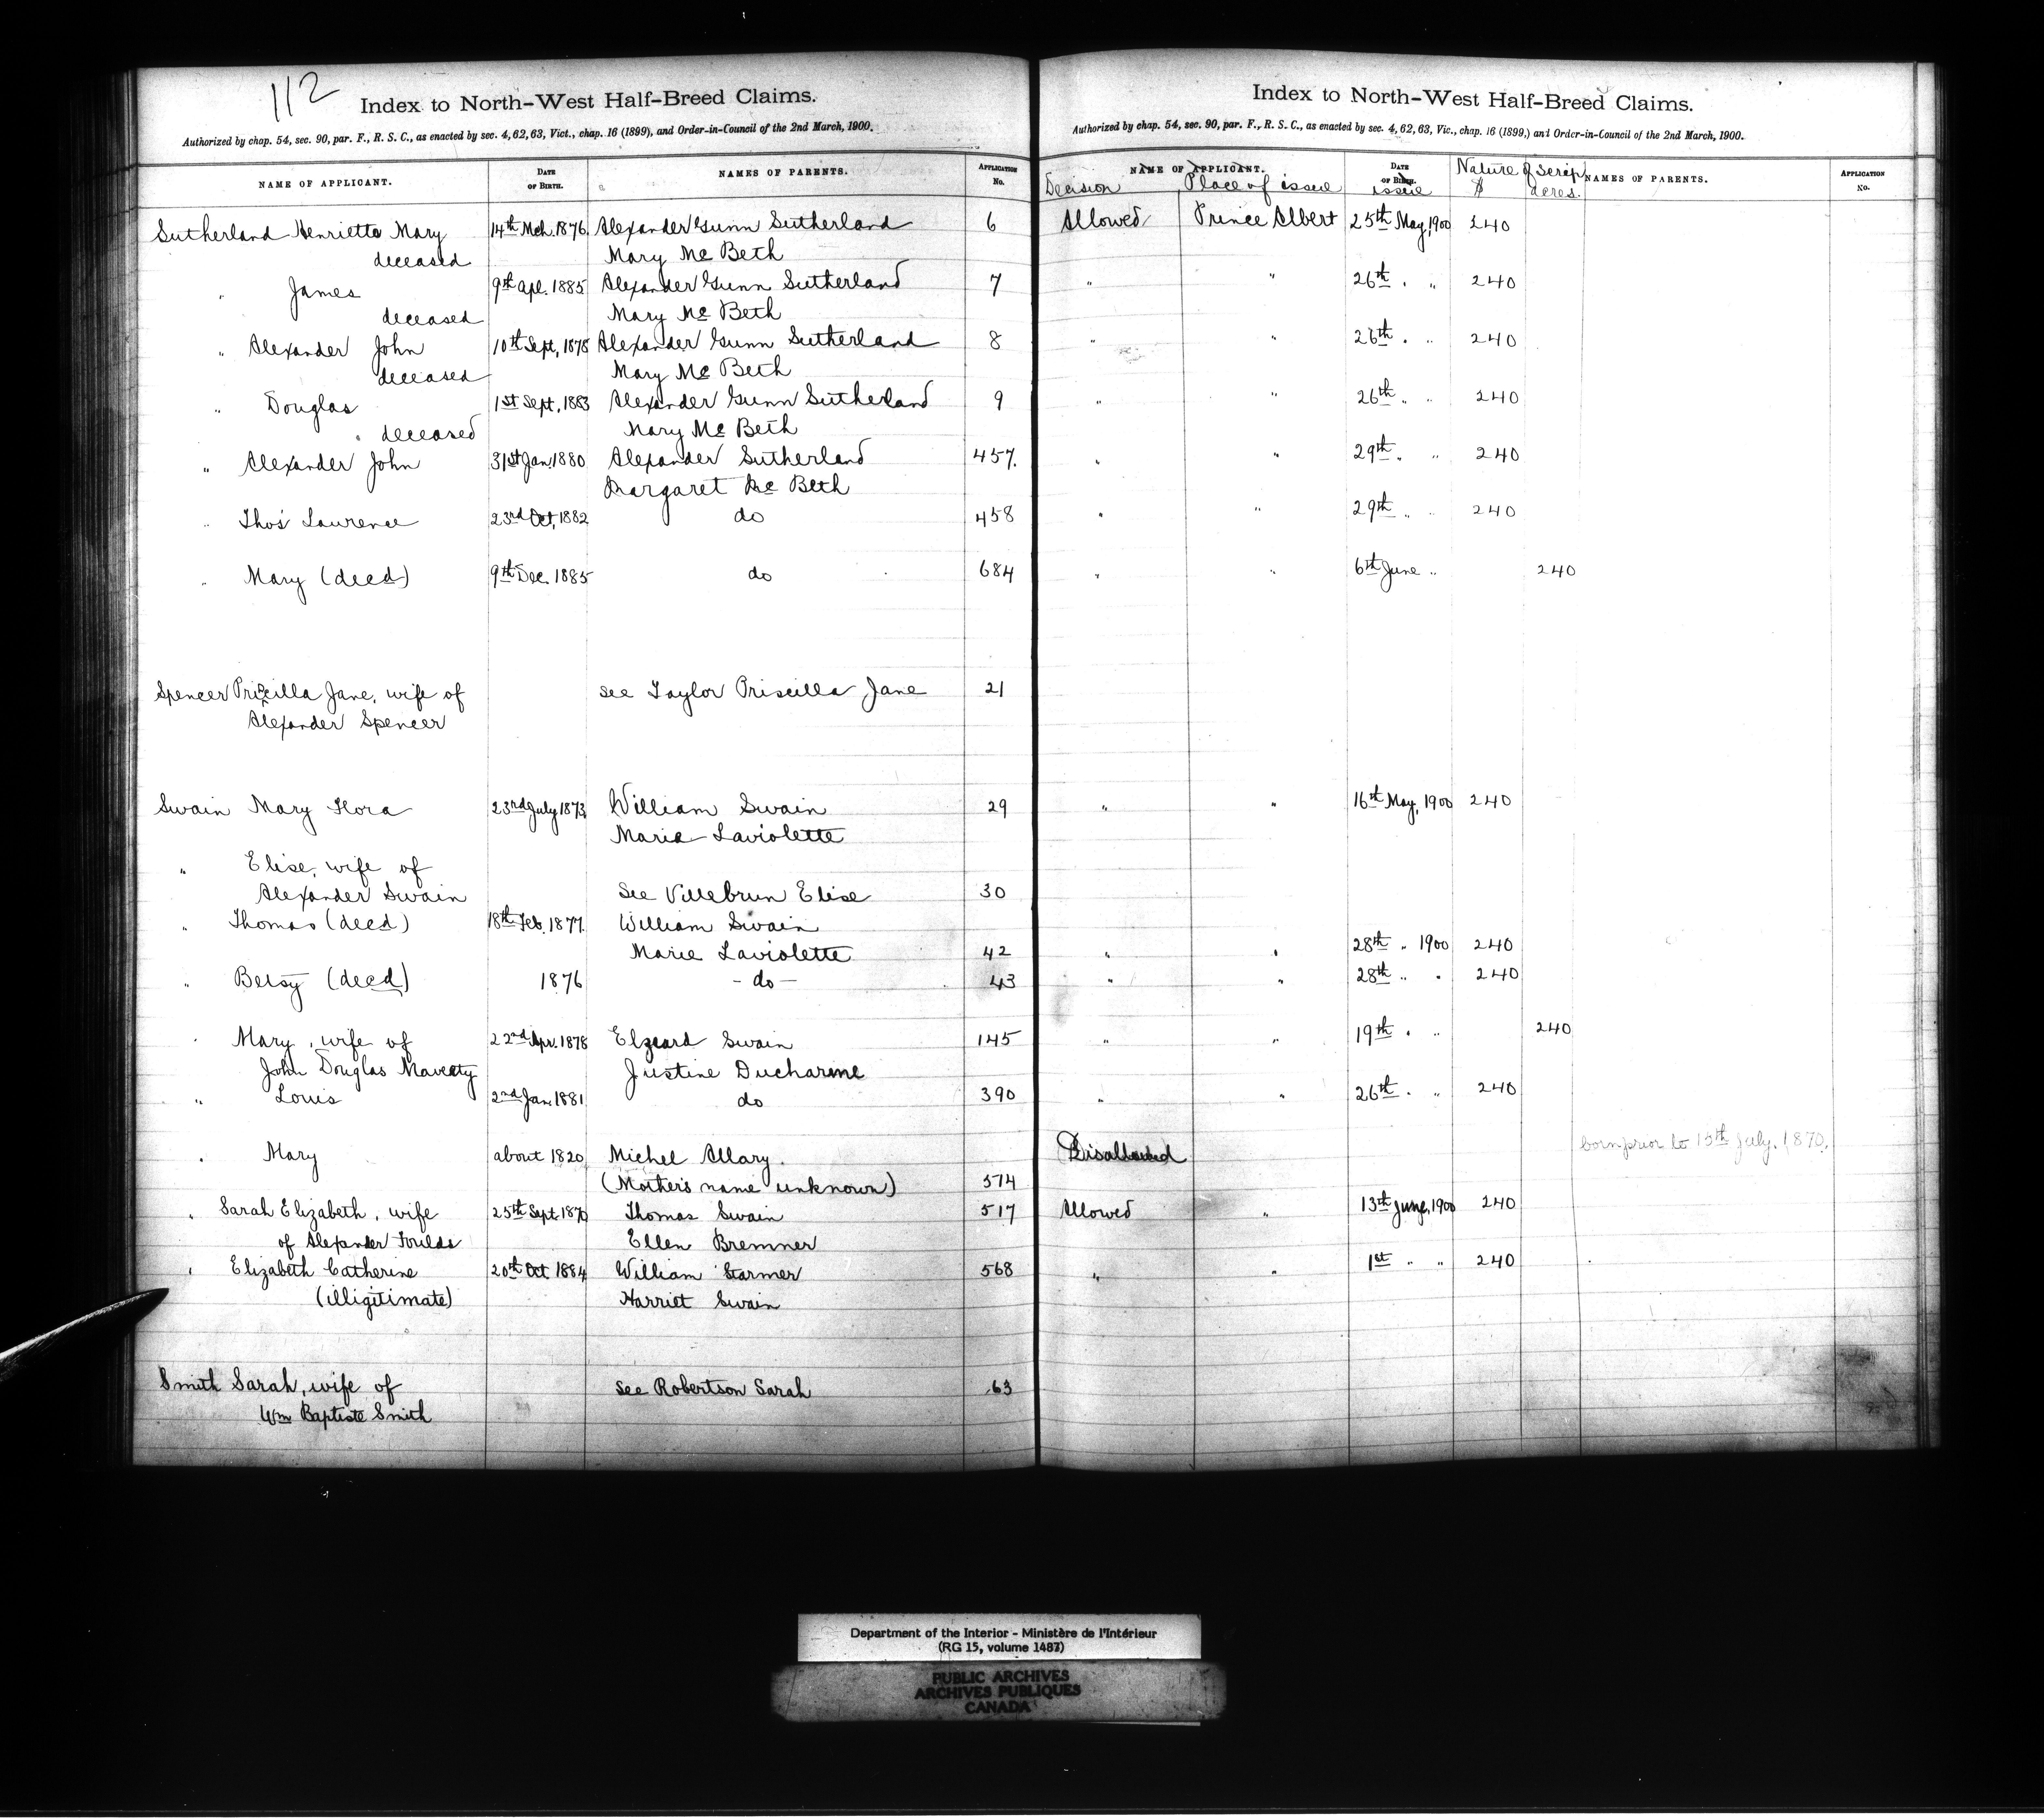 112
Index to North-West Half-Breed Claims.
Authorized by chap. 54, sec. 90, par. F., R. S. C., as enacted by sec. 4, 62, 63, Vict., chap. 16 (1899), and Order-in-Council of the 2nd March, 1900.
NAME OF APPLICANT. DATE OF BIRTH. NAMES OF PARENTS. APPLICATION No.
Sutherland Henrietta Mary 14th Mch. 1876 Alexander Gunn Sutherland 6
deceased Mary Mc Beth
" James 9th Apl. 1885 Alexander Gunn Sutherland 7
deceased Mary Mc Beth
" Alexander John 10th Sept, 1878 Alexander Gunn Sutherland 8
deceased Mary Mc Beth
" Douglas 1st Sept, 1883 Alexander Gunn Sutherland 9
" deceased Mary Mc Beth
" Alexander John 31st Jan. 1880 Alexander Sutherland 457.
Margaret Mc Beth
" Thos Laurence 23rd Oct, 1882 do 458
" Mary (decd) 9th Dec. 1885 do 684
Spencer Priscilla Jane, wife of see Taylor Priscilla Jane 21
Alexander Spencer
Swain Mary Flora 23rd July 1873 William Swain 29
Maria Laviolette
" Elise, wife of
Alexander Swain See Villebrun Elise 30
" Thomas (decd) 18th Feb. 1877. William Swain
Marie Laviolette 42
" Betsy (decd) 1876 - do - 43
" Mary, wife of 22nd Apr. 1878 Elzeard Swain 145
John Douglas Maveaty Justine Ducharme
" Louis 2nd Jan 1881 do 390
" Mary about 1820 Michel Allary.
(Mother's name unknown) 574
" Sarah Elizabeth, wife 25th Sept 1870 Thomas Swain 517
of Alexander Foulds Ellen Bremner
" Elizabeth Catherine 20th Oct 1884 William Starmer 568
(illigitimate) Harriet Swain
Smith Sarah, wife of see Robertson Sarah 63
Wm Baptiste Smith
Index to North-West Half-Breed Claims.
Authorized by chap. 54, sec. 90, par. F., R. S. C., as enacted by sec. 4, 62, 63, Vic., chap. 16 (1899,) and Order-in-Council of the 2nd March, 1900.
NAME OF APPLICANT. DATE OF BIRTH. Nature of Scrip NAMES OF PARENTS. APPLICATION No.
Decision Place of issue issue $ acres.
Allowed Prince Albert 25th May, 1900 240
" " 26th " " 240
" " 26th " " 240
" " 26th " " 240
" " 29th " " 240
" " 29th " " 240
" " 6th June " 240
" " 16th May, 1900 240
" " 28th " 1900 240
" " 28th " " 240
" " 19th " " 240
" " 26th " " 240
Disallowed born prior to 15th July, 1870.
Allowed " 13th June, 1900 240
" " 1st " " 240
Department of the Interior - Ministère de l'Intérieur
(RG 15, volume 1487)
PUBLIC ARCHIVES
ARCHIVES PUBLIQUES
CANADA